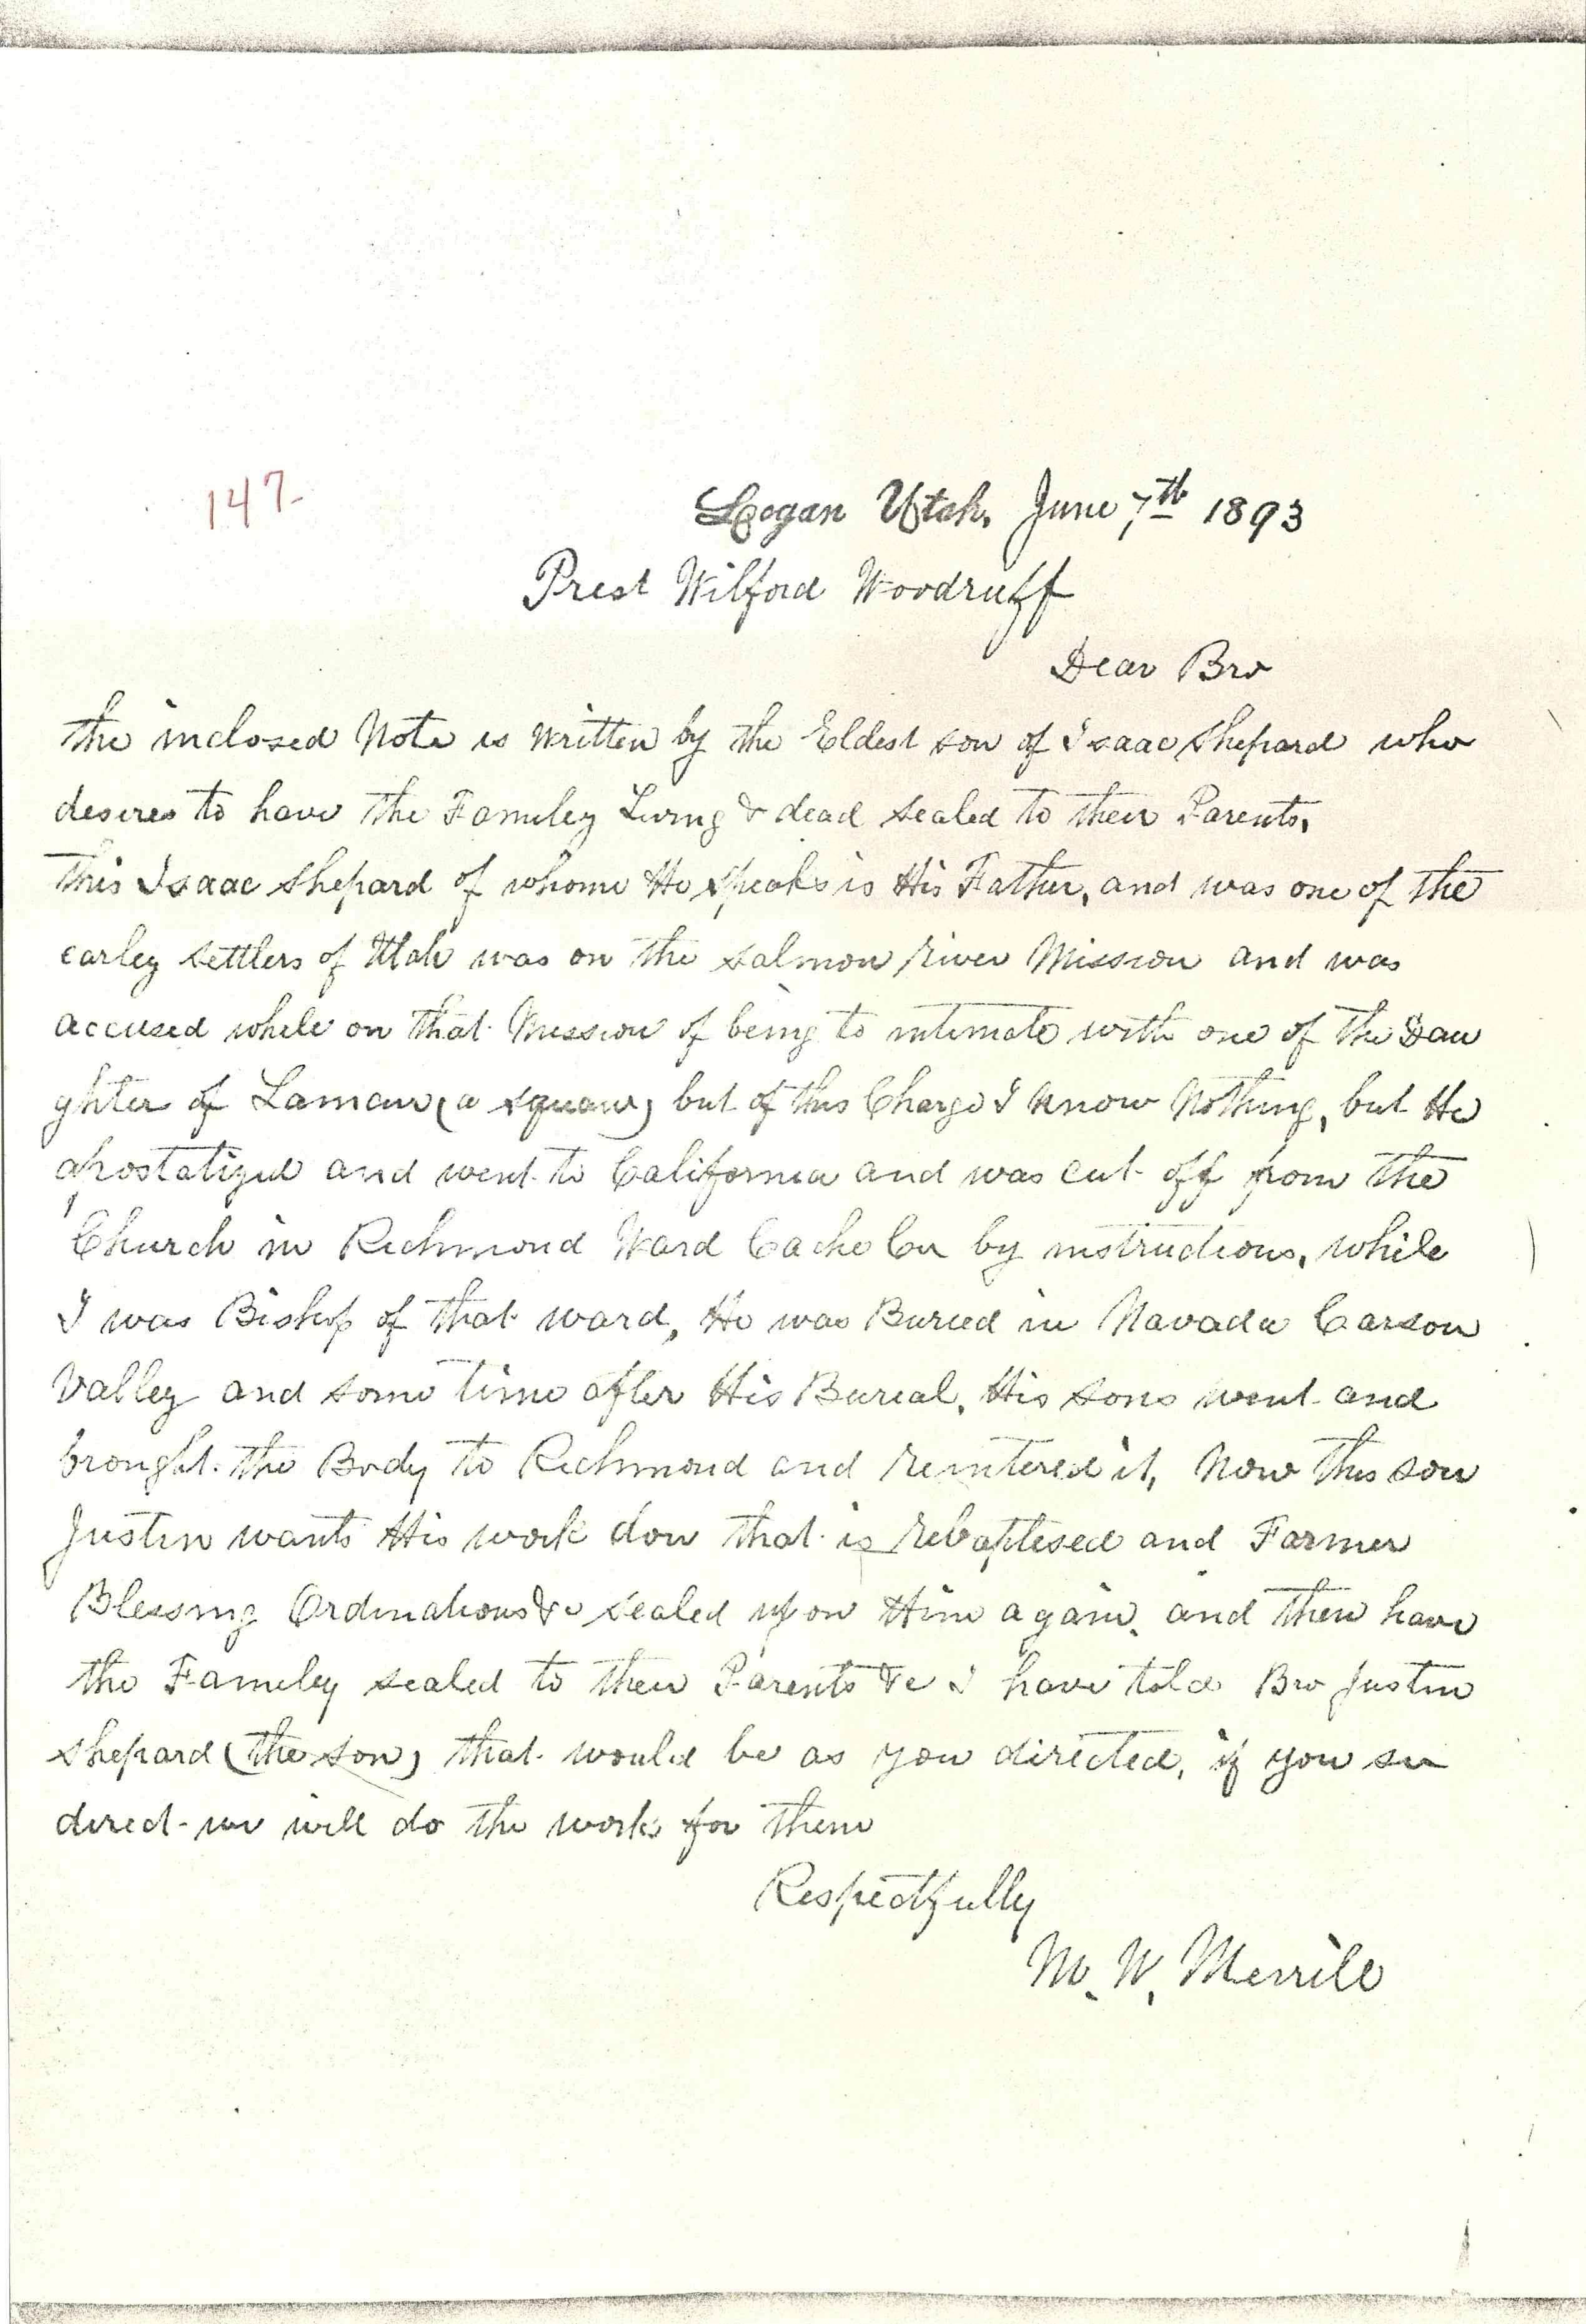 147-
Logan Utah, June 7th 1893
Prest Wilford Woodruff
Dear Bro
the inclosed Note is written by the Eldest son of Isaac Shepard who
desires to have the Familey Living & dead sealed to their Parents,
This Isaac Shepard of whome He speaks is His Father, and was one of the
earley settlers of Utah was on the salmon river Mission and was
accused while on that Mission of being to intimate with one of the Dau
ghter of Laman, (a squaw) but of this Charge I know Nothing, but He
apostatized and went to California and was cut off from the
Church in Richmond Ward Cache Cou by instructions, while
I was Bishop of that ward, He was Buried in Navada Carson
Valley and some time after His Burial, His sons went and
brought the Body to Richmond and reintered it, Now this son
Justin wants His work don that is rebaptised and Farmer
Blessing Ordinations &c sealed upon Him again, and then have
the Familey sealed to their Parents &c I have told Bro Justin
Shepard (the son) that would be as you directed, if you so
direct we will do the work for them
Respectfully
M. W. Merrill